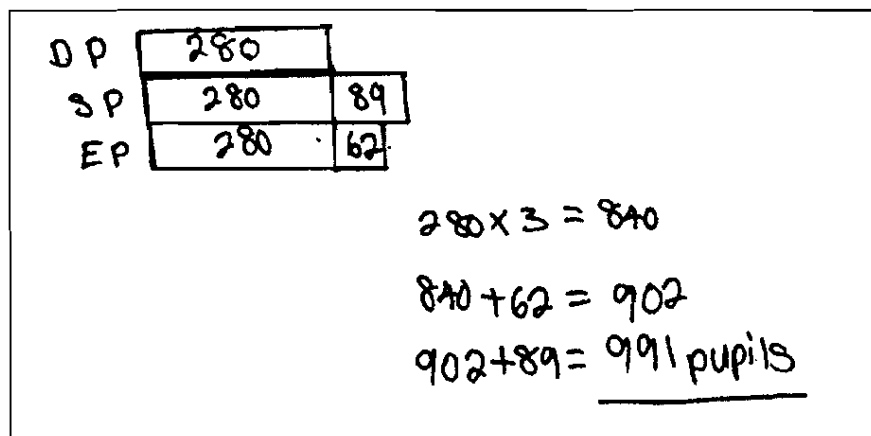 DP 280
SP 280 89
EP 280 62
280 x 3 = 840
840 + 62 = 902
902 + 89 = 991 pupils